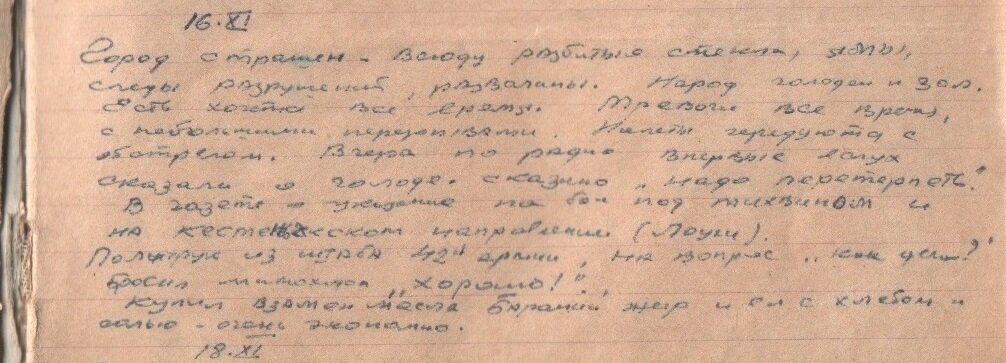 16.XI
Город страшен. Всюду разбитые стекла, ямы,
следы разрушений, развалины. Народ голоден и зол.
Есть хочется все время. Тревоги все время,
с небольшими перерывами. Налеты чередуются с
обстрелом. Вчера по радио впервые вслух
сказали о голоде. Сказано „надо перетерпеть".
В газете - указание на бои под Тихвином и
на Кестеньгском направлении (Лоухи).
Политрук из штаба 42й армии, на вопрос „как дела?"
бросил мимоходом „Хорошо!".
Купил взамен масла бараний жир и ел с хлебом и
солью - очень экономно.
18.XI